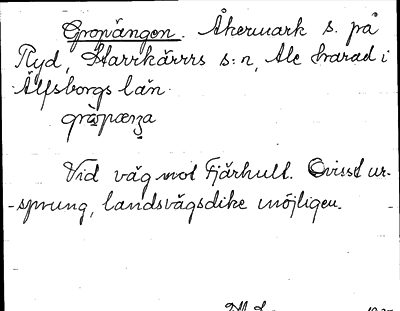 Gropängen. Åkermark s. på
Ryd, Starrkärrs s:n, Ale härad i
Älfsborgs län.
Vid väg mot Fjärhult. Ovisst ur-
sprung, landsvägsdike möjligen.